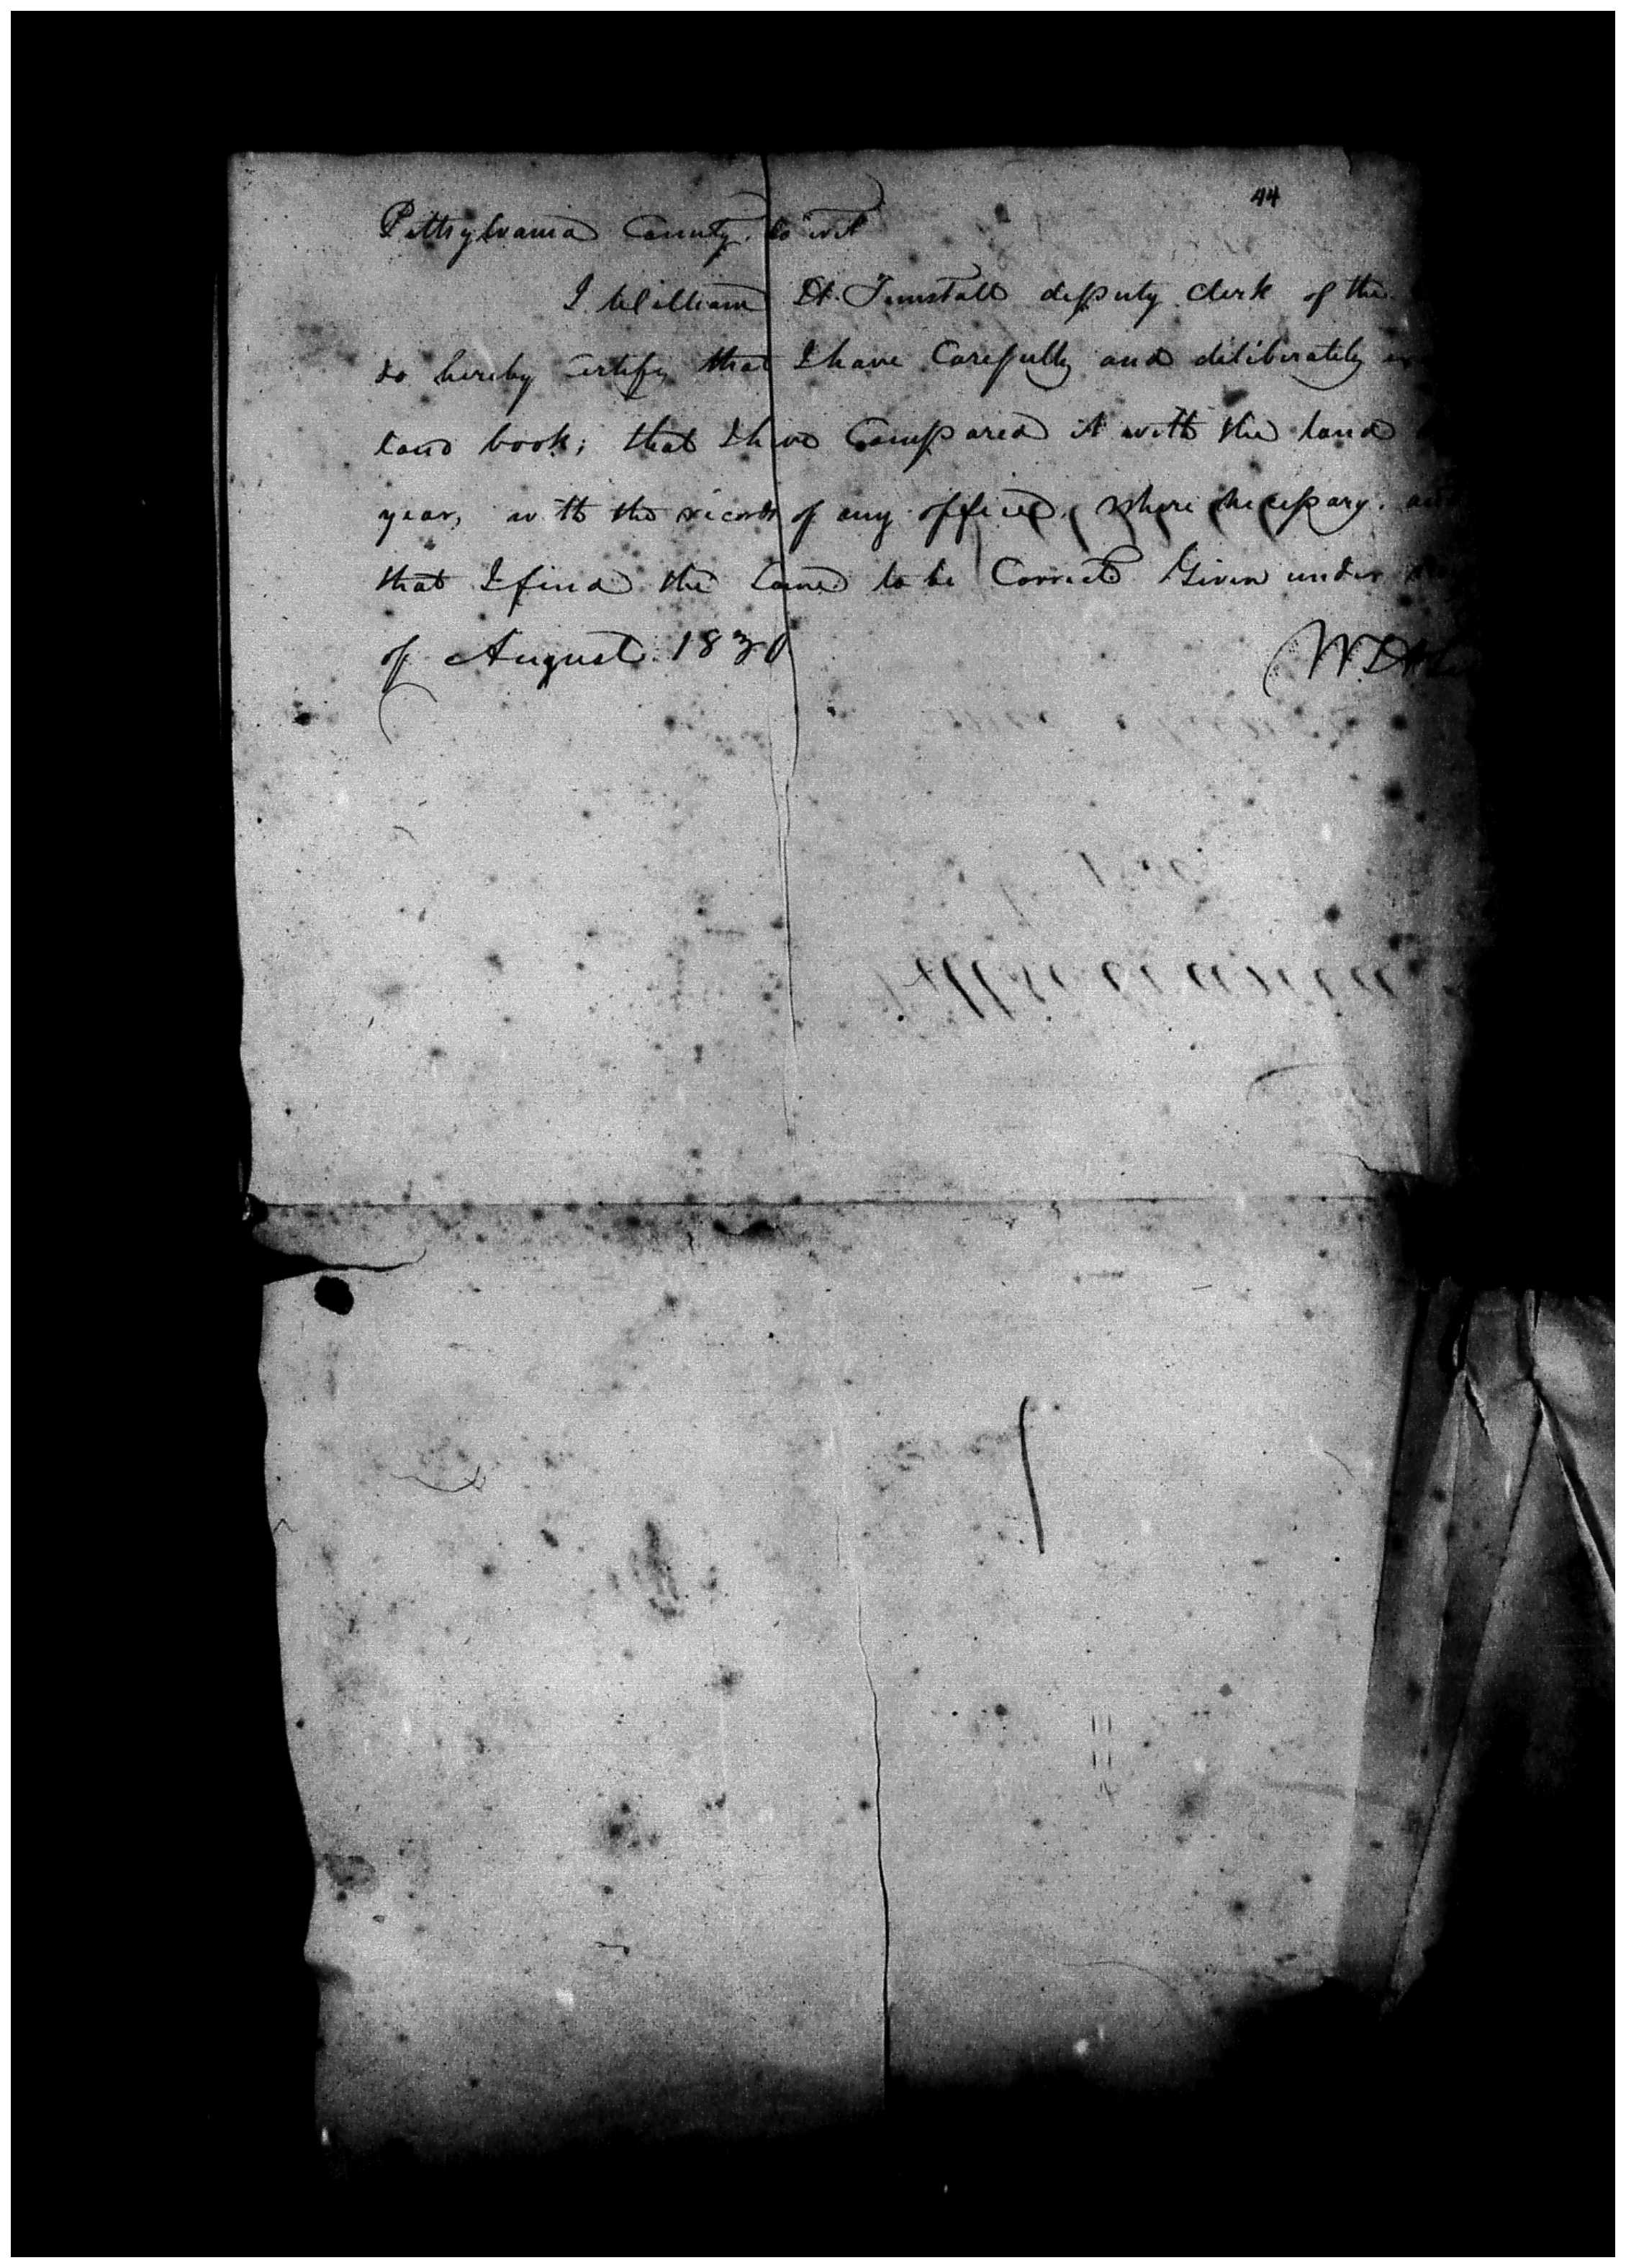 44
Pittsylvania County. to wit
I William H. Tunstall deputy clerk of the
do hereby certify that I have Carefully and deliberately
land book; that I have Compared it with the land
year, with the records of any office, where necessary. and
that I find the same to be Correct Given under
of August 1830